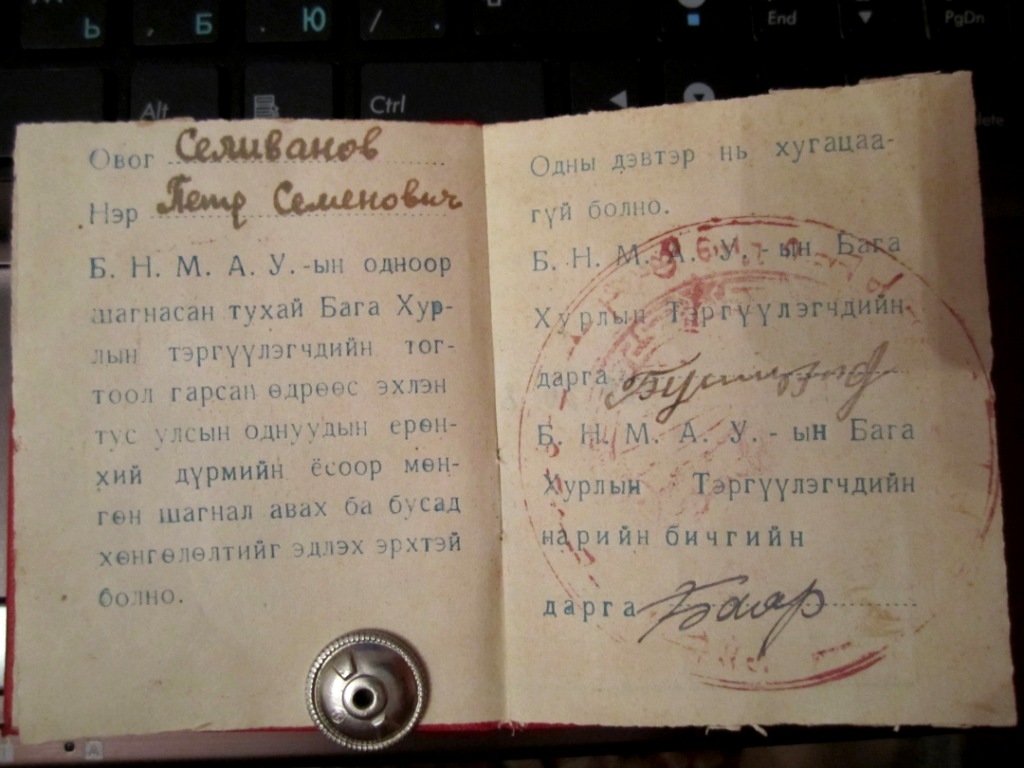 Ь
, Б
. Ю
/ .
End
PgDn
Alt
Ctrl
Овог Селиванов
Нэр Петр Семенович
Б. Н. М. А. У.-ын одноор
шагнасан тухай Бага Хур-
лын тэргүүлэгчдийн тог-
тоол гарсан өдрөөс эхлэн
тус улсын однуудын ерөн-
хий дүрмийн ёсоор мөн-
гөн шагнал авах ба бусад
хөнгөлөлтийг эдлэх эрхтэй
болно.
Одны дэвтэр нь хугацаа-
гүй болно.
Б. Н. М. А. У.-ын Бага
Хурлын Тэргүүлэгчдийн
дарга
Б. Н. М. А. У.-ын Бага
Хурлын Тэргүүлэгчдийн
нарийн бичгийн
дарга